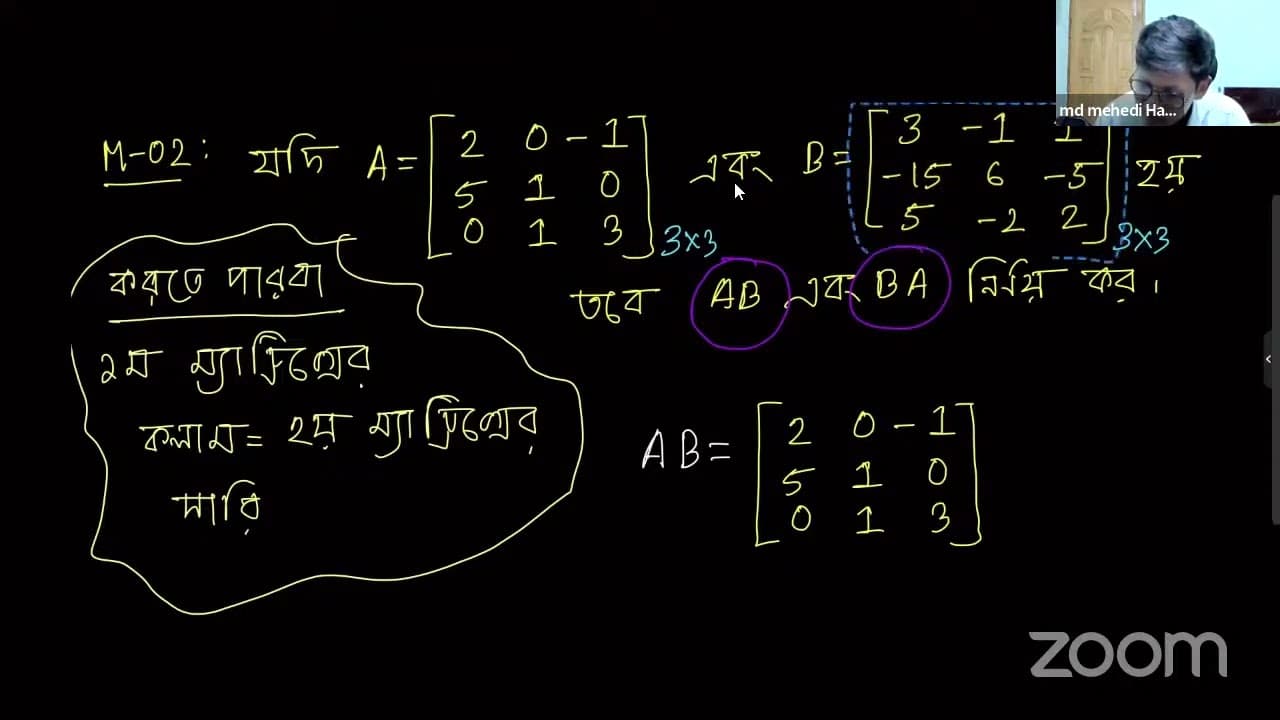 md mehedi Ha...
M-02: যদি A = [2 0 -1 এবং B = [3 -1 1 হয়
5 1 0 -15 6 -5
0 1 3] 3×3 5 -2 2] 3×3
তবে AB এবং BA নির্ণয় কর।
করতে পারবা
১ম ম্যাট্রিক্সের
কলাম = ২য় ম্যাট্রিক্সের
সারি
AB = [2 0 -1
5 1 0
0 1 3]
zoom